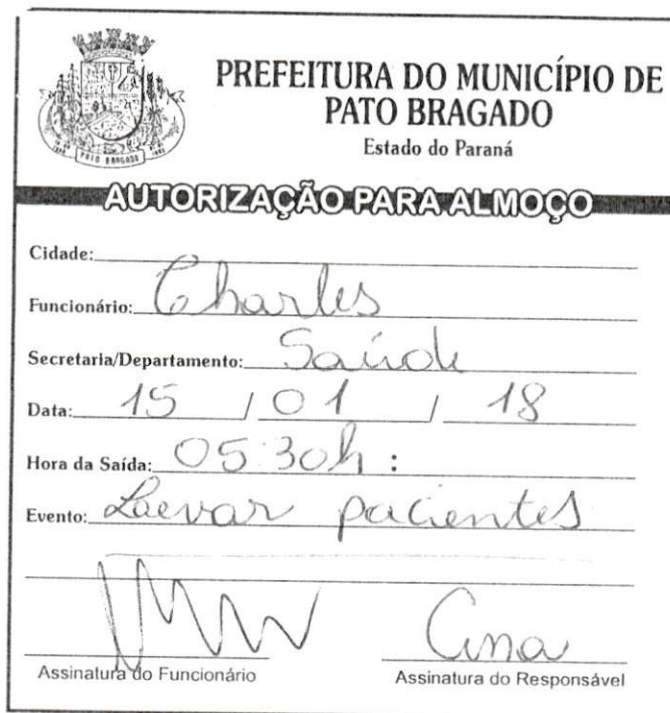 PREFEITURA DO MUNICÍPIO DE
PATO BRAGADO
Estado do Paraná
PATO BRAGADO
AUTORIZAÇÃO PARA ALMOÇO
Cidade:
Funcionário: Charles
Secretaria/Departamento: Saúde
Data: 15 / 01 / 18
Hora da Saída: 05:30h :
Evento: Laevar pacientes
Ana
Assinatura do Funcionário Assinatura do Responsável